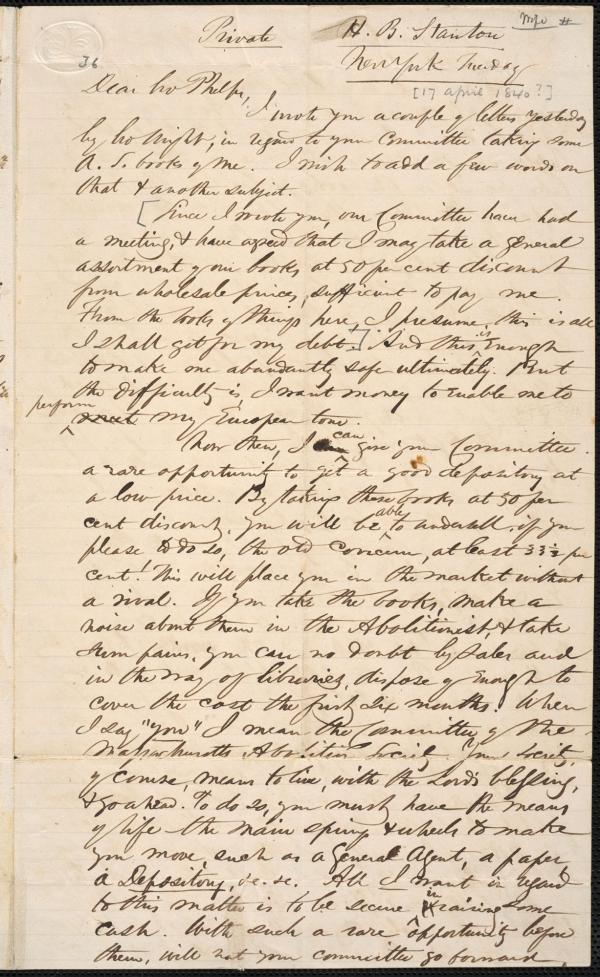 Mpc #
36
Private
H. B. Stanton
New York Tuesday
[17 april 1840?]
Dear bro Phelps,
I wrote you a couple of letters yesterday
by bro Wright, in regard to your Committee taking some
A. S. books of me. I wish to add a few words on
that & another subject.
[Since I wrote you, our Committee have had
a meeting, & have agreed that I may take a general
assortment of our books at 50 per cent discount
from wholesale prices, sufficient to pay me.
From the looks of things here, I presume this is all
I shall get for my debt.] And this is enough
to make me abundantly safe ultimately. But
the difficulty is I want money to enable me to
perform my European tour.
Now then, I can give your Committee
a rare opportunity to get a good depository at
a low price. By taking these books at 50 per
cent discount, you will be able to undersell, if you
please to do so, the old concern, at least 33½ per
cent! This will place you in the market without
a rival. If you take the books, make a
noise about them in the Abolitionist, & take
some pains, you can no doubt by sales and
in the way of libraries, dispose of enough to
cover the cost the first six months. When
I say "you" I mean the Committee of the
Massachusetts Abolition Society. Your society,
of course, means to live, with the Lord's blessing,
& go ahead. To do so, you must have the means
of life—the main spring & wheels to make
you move, such as a General Agent, a paper
a Depository, &c. &c. All I want in regard
to this matter is to be secure in raising some
cash. With such a rare opportunity before
them, will not your committee go forward,